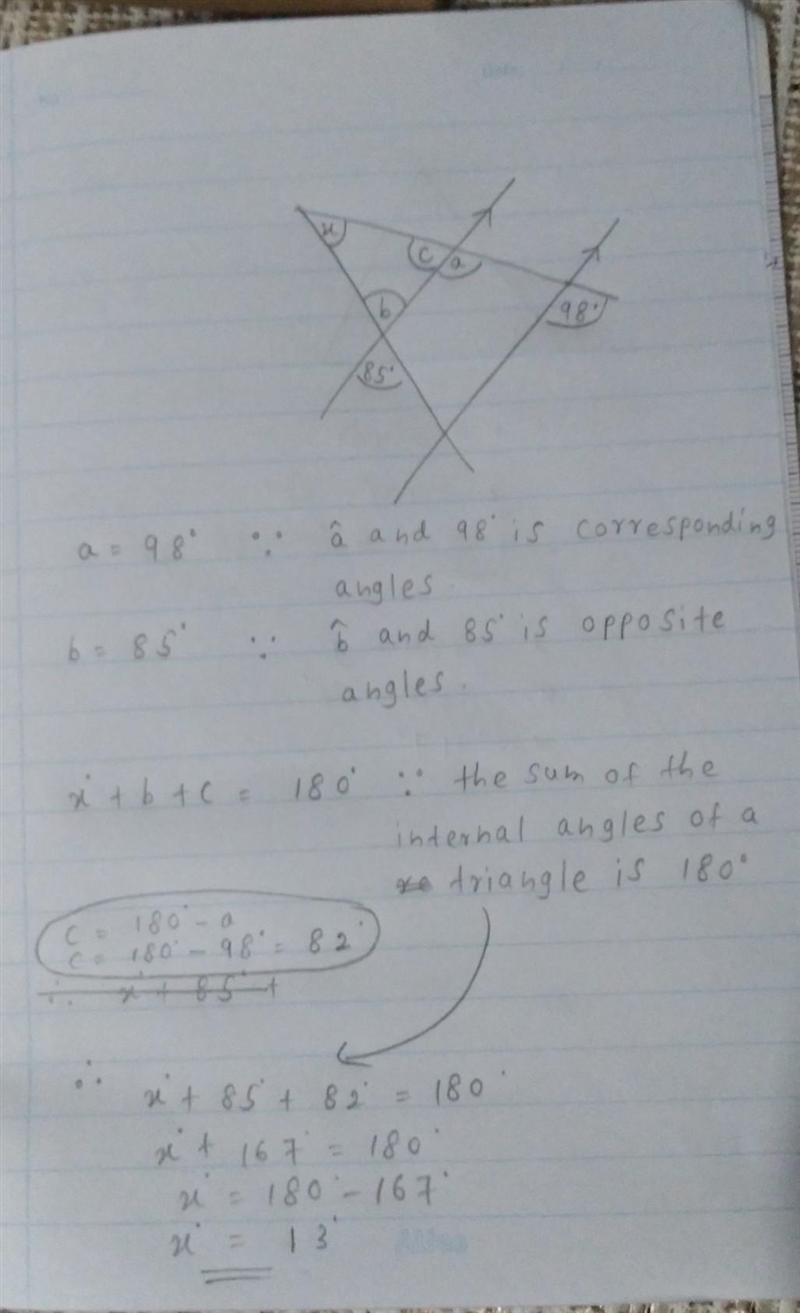 x
c
a
b
98°
85°
a = 98° ∵ â and 98° is corresponding
angles.
b = 85° ∵ b̂ and 85° is opposite
angles.
x° + b + c = 180° ∵ the sum of the
internal angles of a
triangle is 180°
c = 180° - a
c = 180° - 98° = 82°
∴ x° + 85° +
∴ x° + 85° + 82° = 180°
x° + 167° = 180°
x° = 180° - 167°
x° = 13°